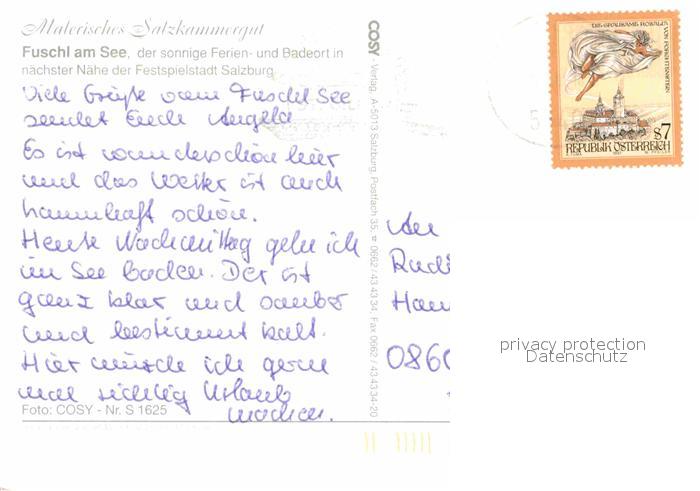 Malerisches Salzkammergut
Fuschl am See, der sonnige Ferien- und Badeort in
nächster Nähe der Festspielstadt Salzburg
Viele Grüße vom Fuschl See
sendet Euch Angela
Es ist wunderschön hier
und das Wetter ist auch
traumhaft schön.
Heute Nachmittag gehe ich
im See baden. Der ist
ganz klar und sauber
und bestimmt kalt.
Hier würde ich gern
mal richtig Urlaub
machen.
Foto: COSY - Nr. S 1625
COSY - Verlag, A-5013 Salzburg, Postfach 35, ☎ 0662/43 43 34, Fax 0662 / 43 43 34-20
DIE GRAUSAME ROSALIA
VON FORCHTENSTEIN
S7
REPUBLIK ÖSTERREICH
1997
An
Rudi
Han
0860
privacy protection
Datenschutz